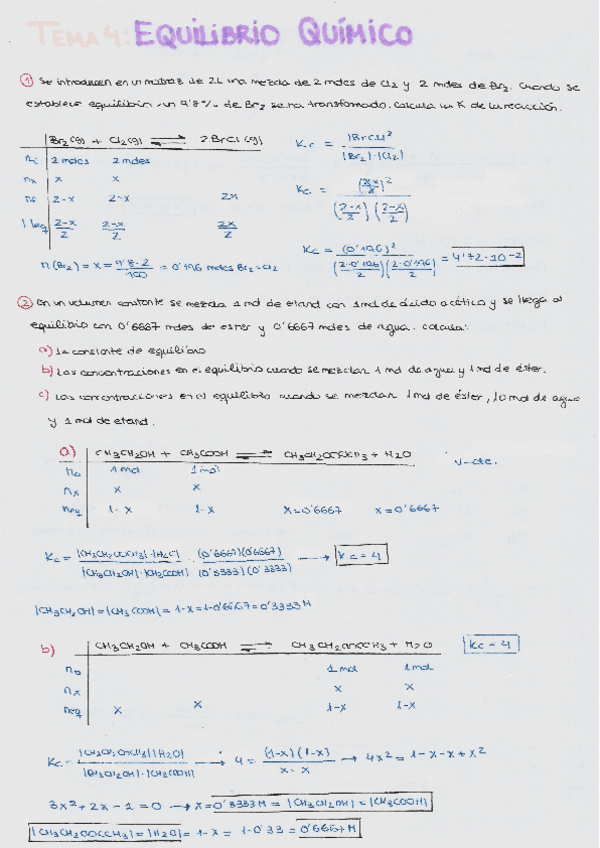 TEMA 4: EQUILIBRIO QUÍMICO
① Se introducen en un matraz de 2L una mezcla de 2 moles de Cl2 y 2 moles de Br2. Cuando se
establece equilibrio un 9'8% de Br2 se ha transformado. Calcula la K de la reacción.
Br2(g) + Cl2(g) ⇌ 2BrCl(g)
ni 2 moles 2 moles
nx x x
2-x 2-x 2x
| |eq (2-x)/2 (2-x)/2 2x/2
n(Br2) = x = 9'8·2/100 = 0'196 moles Br2 = Cl2
Kc = |BrCl|²/(|Br2|·|Cl2|)
Kc = (2x/2)²/((2-x)/2)((2-x)/2)
Kc = (0'196)²/((2-0'196)/2)((2-0'196)/2) = 4'72·10⁻²
② En un volumen constante se mezcla 1 mol de etanol con 1 mol de ácido acético y se llega al
equilibrio con 0'6667 moles de ester y 0'6667 moles de agua. calcula:
a) La constante de equilibrio
b) Las concentraciones en el equilibrio cuando se mezclan 1 mol de agua y 1 mol de éster.
c) Las concentraciones en el equilibrio cuando se mezclan 1 mol de éster, 1 mol de agua
y 1 mol de etanol.
a) CH3CH2OH + CH3COOH ⇌ CH3CH2OCOCH3 + H2O
V=cte.
no 1 mol 1 mol
nx x x
neq 1-x 1-x x=0'6667 x=0'6667
Kc = |CH3CH2OCOCH3|·|H2O|/|CH3CH2OH|·|CH3COOH| (0'6667)(0'6667)/(0'3333)(0'3333) → Kc = 4
|CH3CH2OH| = |CH3COOH| = 1-x = 1-0'6667 = 0'3333 M
b) CH3CH2OH + CH3COOH ⇌ CH3CH2OCOCH3 + H2O
Kc = 4
no 1 mol 1 mol
nx x x
neq x x 1-x 1-x
Kc = |CH3CH2OCOCH3||H2O|/|CH3CH2OH|·|CH3COOH| → 4 = (1-x)(1-x)/x·x → 4x² = 1-x-x+x²
3x²+2x-1=0 → x = 0'3333 M = |CH3CH2OH| = |CH3COOH|
|CH3CH2OCOCH3| = |H2O| = 1-x = 1-0'33 = 0'6667 M